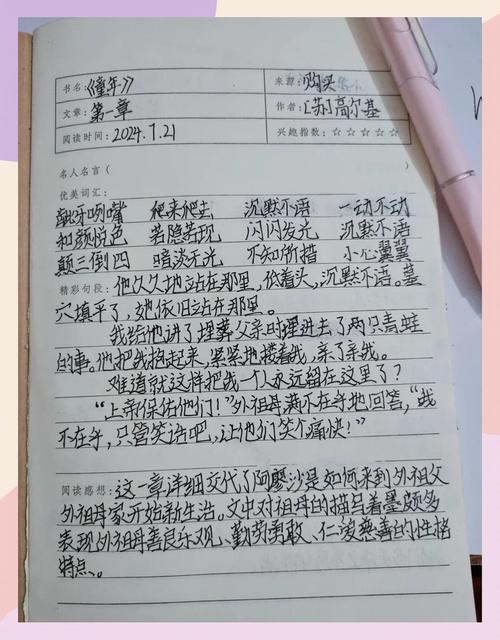 书名:《童年》 来源:购买
文章:第一章 作者:[苏]高尔基
阅读时间:2024.7.21 兴趣指数:☆☆☆☆☆
名人名言( )
优美词汇:
龇牙咧嘴 爬来爬去 沉默不语 一动不动
和颜悦色 若隐若现 闪闪发光 沉默不语
颠三倒四 暗淡无光 不知所措 小心翼翼
精彩句段:他久久地站在那里,低着头,沉默不语。墓
穴填平了,她依旧站在那里。
我给他讲了埋葬父亲时埋进去了两只青蛙
的事。他把我抱起来,紧紧地搂着我,亲了亲我。
难道就这样把我一个人永远留在这里了?
“上帝保佑他们!”外祖母满不在乎地回答,“我
不在乎,只管笑话吧,让他们笑个痛快!”
阅读感想:这一章详细交代了阿廖沙是如何来到外祖父
外祖母家开始新生活。文中对祖母的描写着墨颇多
表现外祖母善良乐观、勤劳勇敢、仁慈善的性格
特点、。